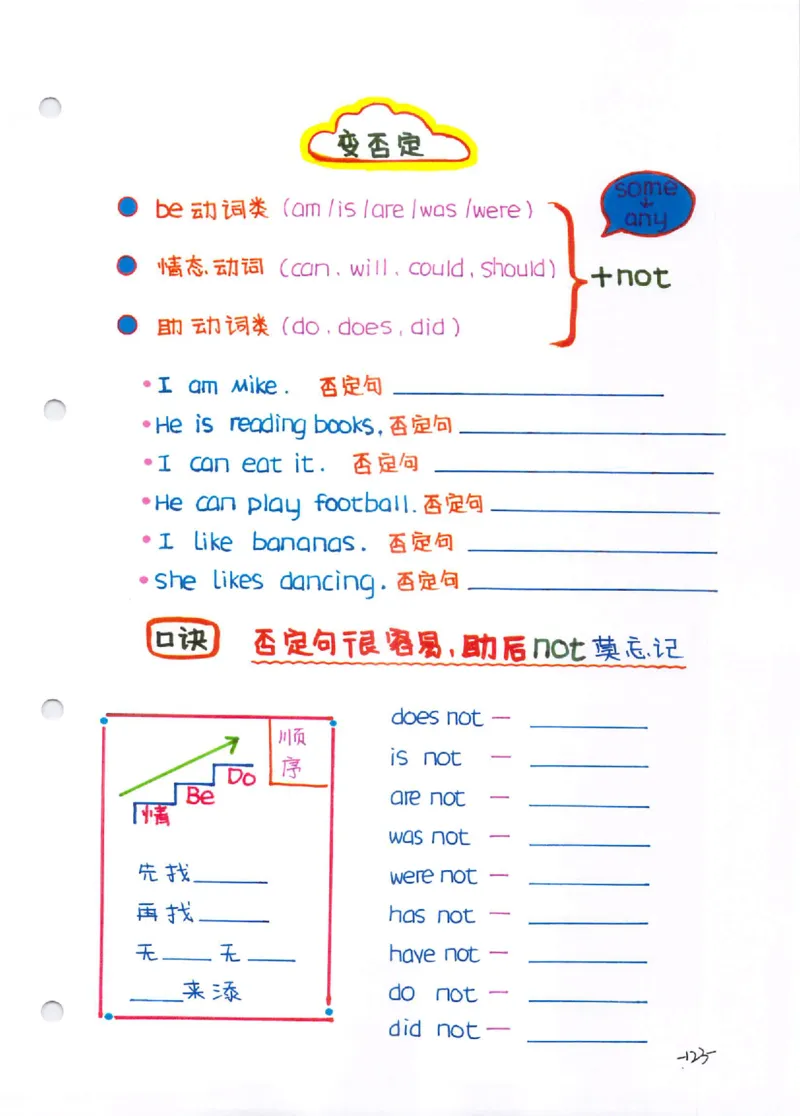 变否定
some
↓
any
be动词类(am/is/are/was/were)
情态动词(can、will、could,should)
+not
助动词类(do、does,did)
•I am Mike. 否定句
•He is reading books,否定句
•I can eat it. 否定句
•He can play football.否定句
•I like bananas. 否定句
•she likes dancing.否定句
口诀 否定句很容易,助后not莫忘记
顺
序
Do
Be
情
先找
再找
无 无
来添
does not —
is not —
are not —
was not —
were not —
has not —
have not —
do not —
did not —
-123-